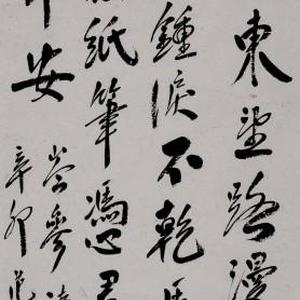 東望路漫
鍾淚不乾馬
紙筆憑君
平安
岑參詩
辛卯